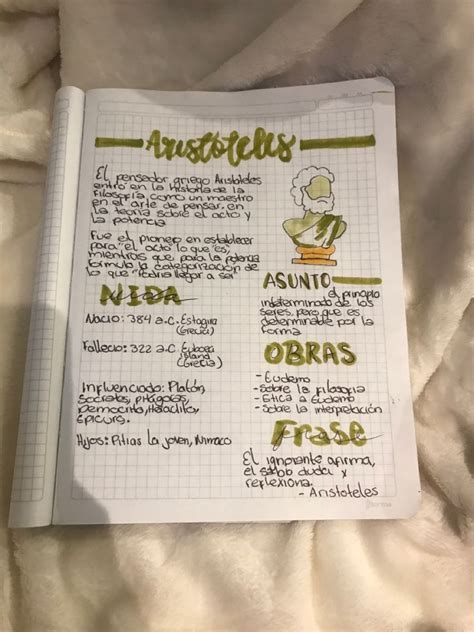 Aristóteles
El pensador griego Aristóteles
entró en la historia de la
filosofía como un maestro
en el arte de pensar, en
la teoría sobre el acto y
la potencia
Fue el pionero en establecer
para "el acto lo que es,
mientras que para la potencia
formulo la categorización de
lo que "podría llegar a ser
VIDA
Nacio: 384 a.C. Estagira
(Grecia)
Fallecio: 322 a.C. Euboea
island
(Grecia)
Influenciado: Platón,
Socrates, pitágoras,
Democrito, Heraclito,
Epicurs.
Hijos: Pitias la joven, Nimaco
ASUNTO
el principio
indeterminado de los
seres, pero que es
determinable por la
forma
OBRAS
- Eudemo
- Sobre la filosofia
- Etica a Eudemo
- Sobre la interpretación
Frase
El ignorante afirma,
el sabio duda y
reflexiona.
- Aristoteles